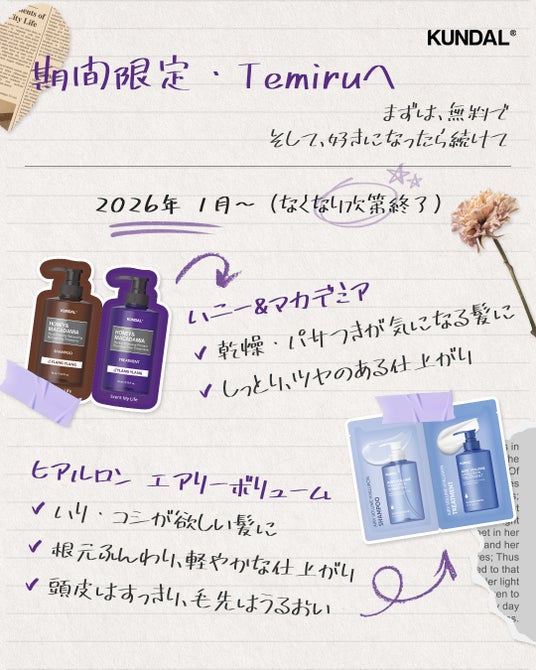 ents of
City Life
KUNDAL®
期間限定・Temiruへ
まずは、無料で
そして、好きになったら続けて
2026年 1月〜 (なくなり次第終了)
ハニー&マカデミア
✓ 乾燥・パサつきが気になる髪に
✓ しっとり、ツヤのある仕上がり
KUNDAL
HONEY&
MACADAMIA
SHAMPOO
YLANG YLANG
KUNDAL
HONEY&
MACADAMIA
TREATMENT
YLANG YLANG
Scent My Life
ヒアルロン エアリーボリューム
✓ ハリ・コシが欲しい髪に
✓ 根元ふんわり、軽やかな仕上がり
✓ 頭皮はすっきり、毛先はうるおい
SHAMPOO
TREATMENT
s in
the
Of
ns
ght
eet in her
and her
es; Thus
ed to that
der light
en to
y day